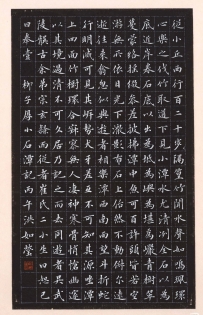 從小丘西行百二十步隔篁竹聞水聲如鳴珮環
心樂之伐竹取道下見小潭水尤清冽全石以為
底近岸卷石底以出為坻為嶼為嵁為巖青樹翠
蔓蒙絡搖綴參差披拂潭中魚可百許頭皆若空
游無所依日光下澈影布石上佁然不動俶爾遠
逝往來翕忽似與游者相樂潭西南而望斗折蛇
行明滅可見其岸勢犬牙差互不可知其源坐潭
上四面竹樹環合寂寥無人凄神寒骨悄愴幽邃
以其境過清不可久居乃記之而去同遊者吳武
陵龔古余弟宗玄隸而從者崔氏二小生曰恕己
曰奉壹 柳子厚小石潭記丙午洪如瑩